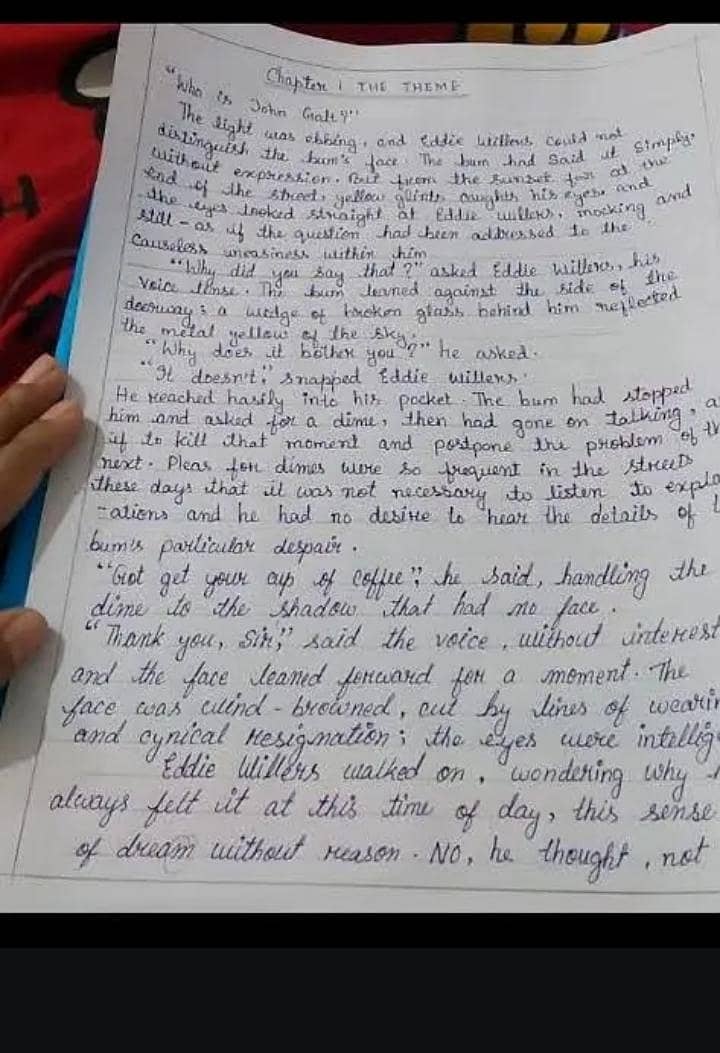 Chapter 1 THE THEME
"Who is John Galt ?"
The light was ebbing, and Eddie willers could not
distinguish the bum's face. The bum had said it simply,
without expression. But from the sunset far at the
end of the street, yellow glints caught his eyes and
the eyes looked straight at Eddie willers, mocking and
still - as if the question had been addressed to the
causeless uneasiness within him
"Why did you say that ?" asked Eddie willers, his
voice tense. The bum leaned against the side of the
doorway ; a wedge of broken glass behind him reflected
the metal yellow of the sky.
"Why does it bother you ?" he asked.
"It doesn't," snapped Eddie willers.
He reached hasily into his pocket. The bum had stopped
him and asked for a dime, then had gone on talking, a
if to kill that moment and postpone the problem of th
next. Pleas for dimes were so frequent in the streets
these days that it was not necessary to listen to expla
-ations and he had no desire to hear the details of t
bum's particular despair.
"Got get your cup of coffee", he said, handling the
dime to the shadow that had no face.
"Thank you, Sir," said the voice, without interest
and the face leaned forward for a moment. The
face was wind - browned, cut by lines of wearin
and cynical resignation ; the eyes were intellig
Eddie Willers walked on, wondering why
always felt it at this time of day, this sense
of dream without reason. NO, he thought, not